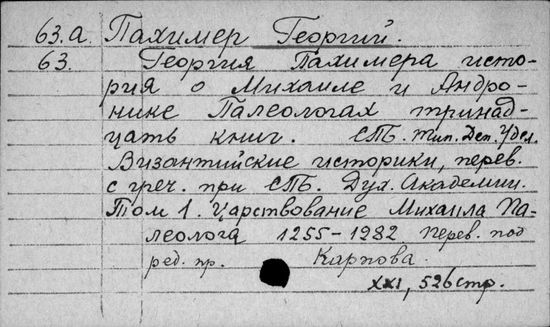 63.а. Пахимер Георгий.
63. Георгия Пахимера исто-
рия о Михаиле и Андро-
нике Палеологах тринад-
цать книг. СПБ. тип. Деп. Удел.
Византийские историки, перев.
с греч. при СПБ. Дух. Академии.
Том 1. Царствование Михаила Па-
леолога 1255-1282 Перев. под
ред. пр. Карпова.
XXI, 526 стр.